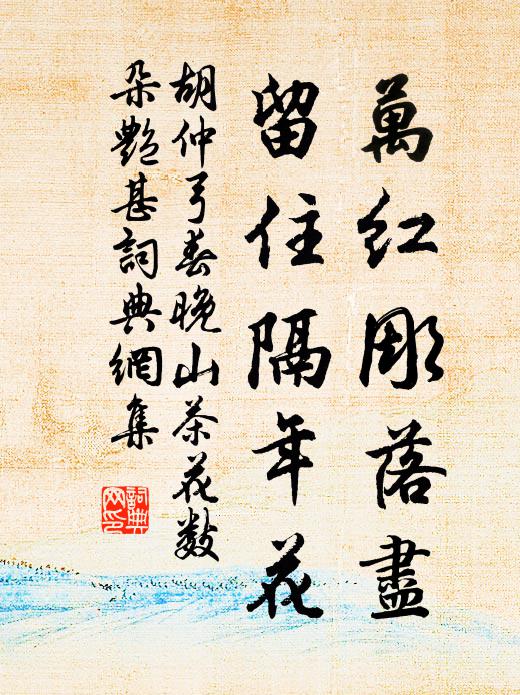 萬红彫落盡
留住隔年花
胡仲弓春晚山茶花数
朶艷甚詞典網集
詞典網印